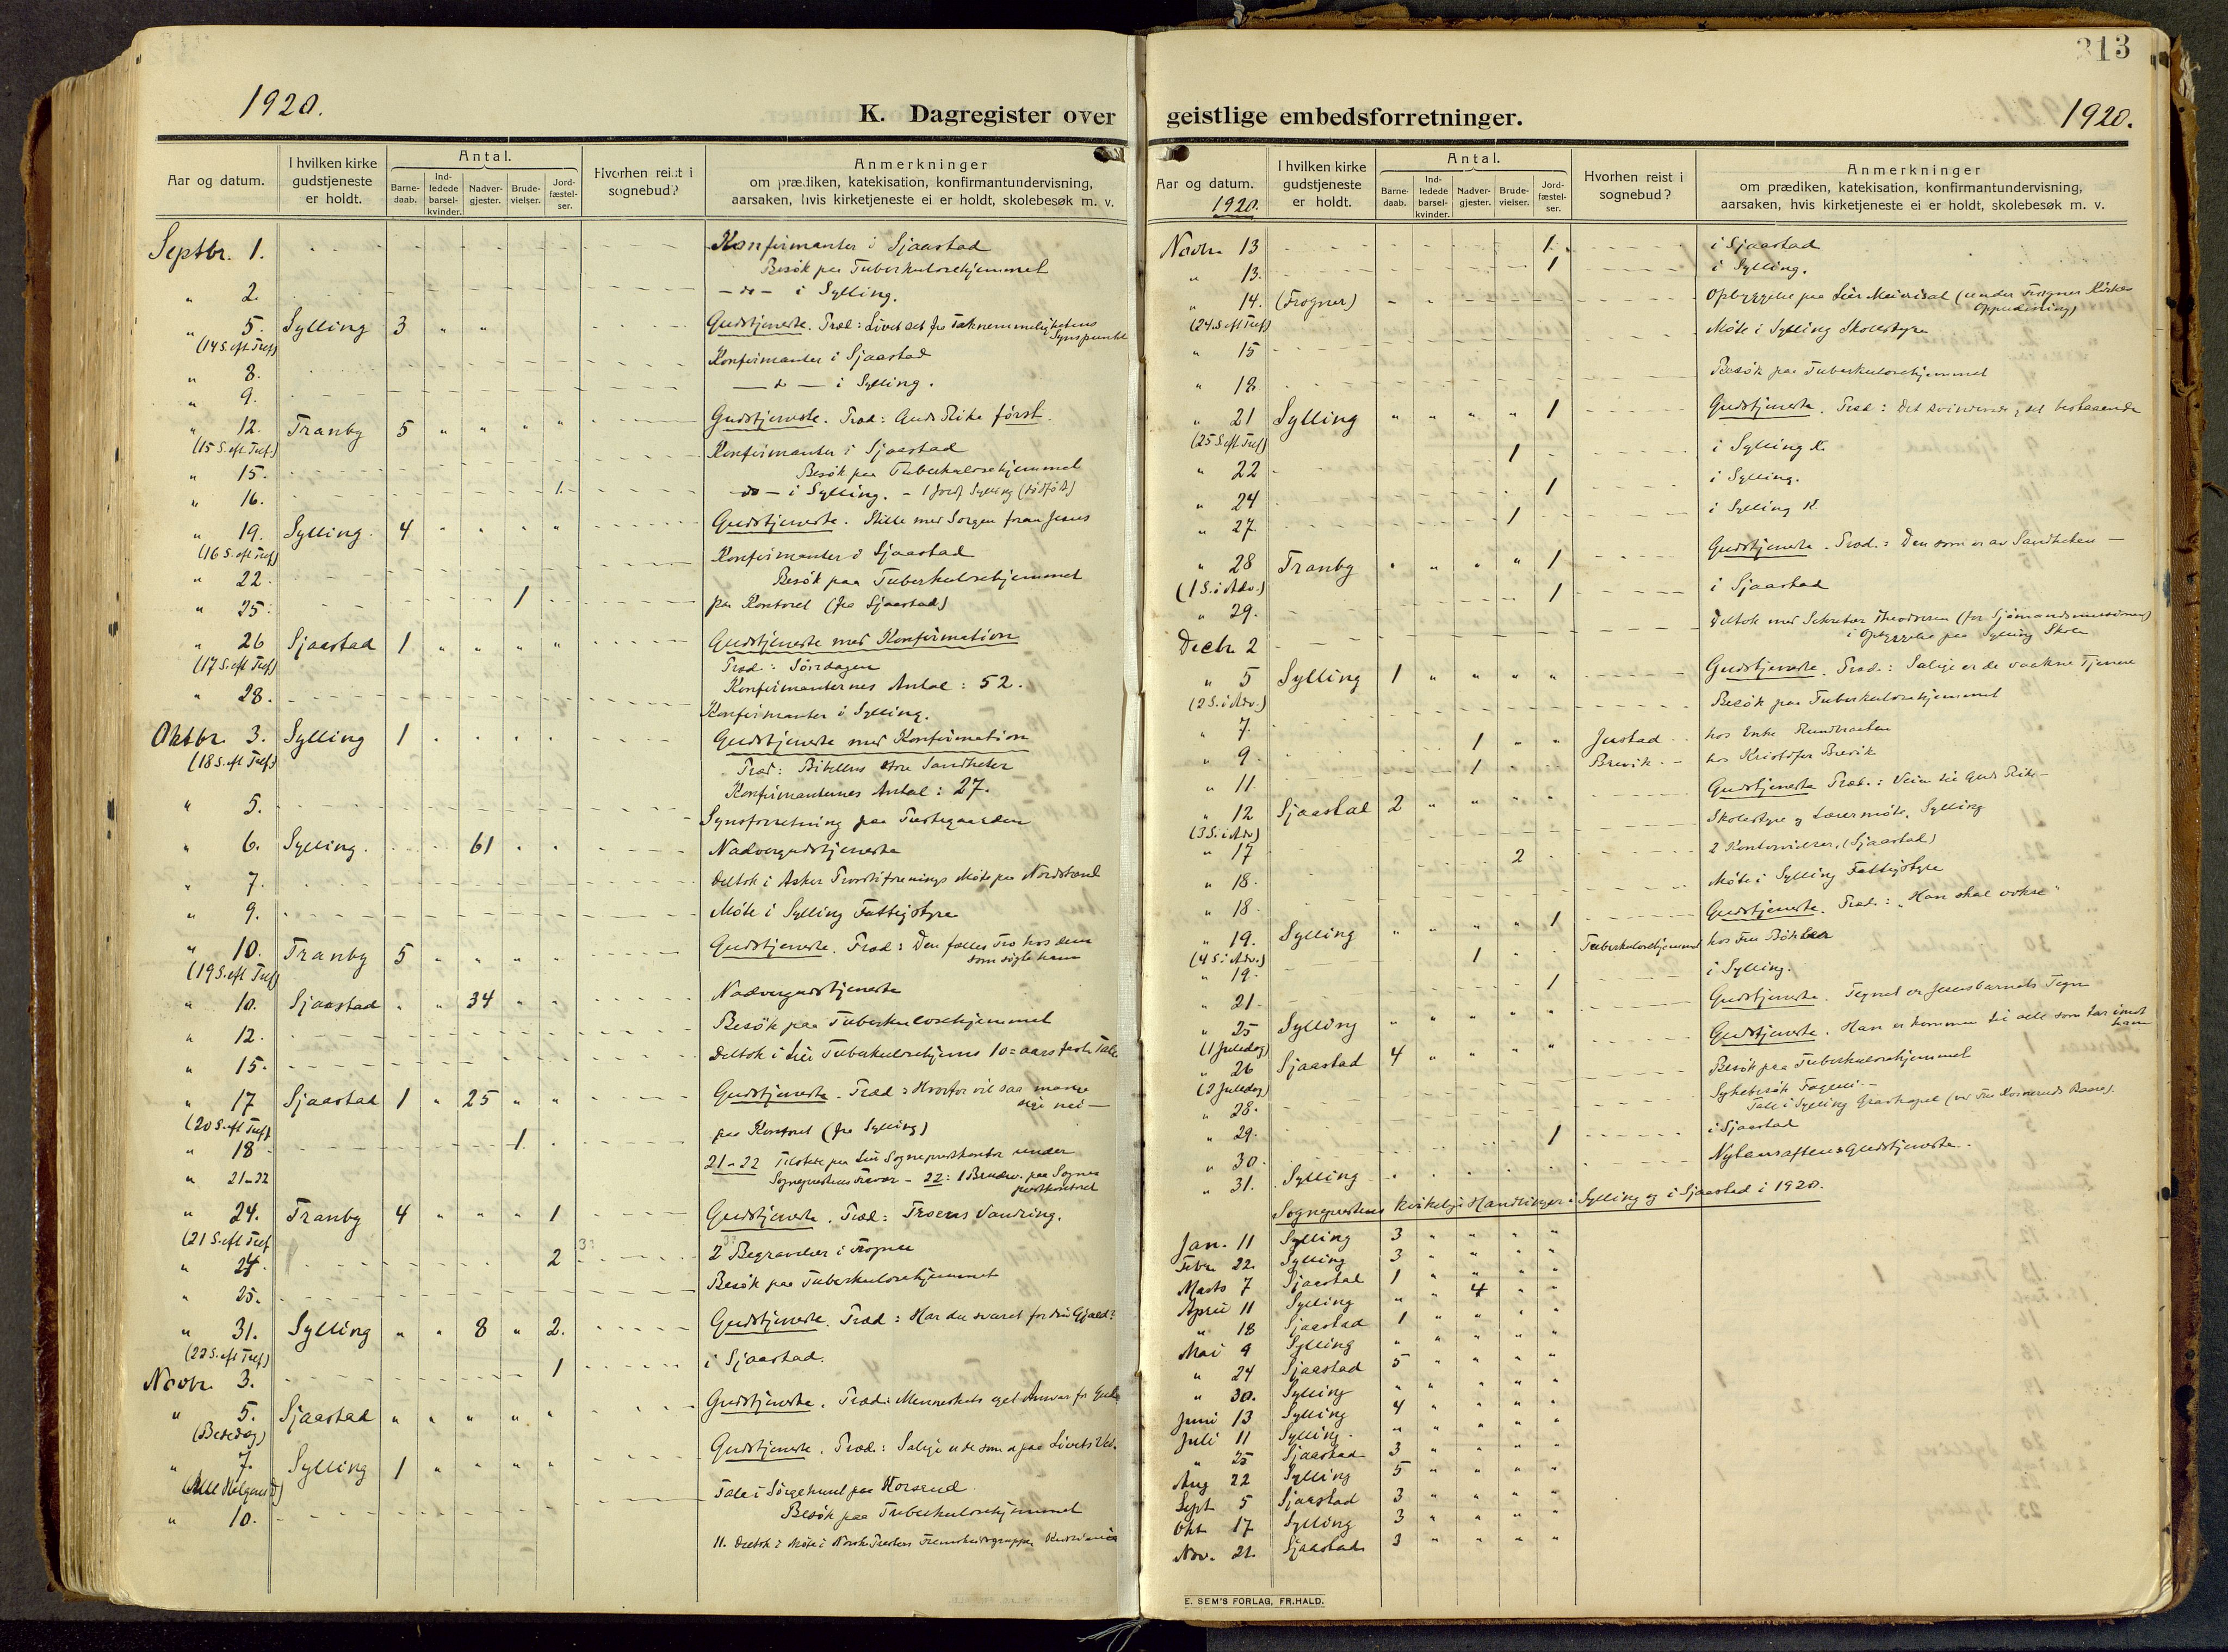 1920.
K. Dagregister over
Aar og datum.
I hvilken kirke gudstjeneste er holdt.
Antal.
Barne-daab.
Ind-ledede barsel-kvinder.
Nadver-gjester.
Brude-vielser.
Jord-fæstel-ser.
Hvorhen reist i sognebud?
Anmerkninger
om prædiken, katekisation, konfirmantundervisning,
aarsaken, hvis kirketjeneste ei er holdt, skolebesøk m. v.
Septbr. 1. Konfirmanter i Sjaastad
Besök paa Tuberkulosehjemmet
" 2. — do — i Sylling.
" 5. Sylling 3 " " Gudstjeneste. Præd: Livet set fra Taknemmelighetens Synspunkt
(14 S. eft Tref)
" 8. Konfirmanter i Sjaastad
" 9. — do — i Sylling.
" 12. Tranby 5 " " " " Gudstjeneste. Præd: Guds Rike först.
(15 S. eft. Tref.)
" 15. Konfirmanter i Sjaastad
Besök paa Tuberkulosehjemmet
" 16. 1. — do — i Sylling. - 1 Jordf Sylling (dödfödt)
" 19. Sylling. 4 " " " " Gudstjeneste. Stille med Sorgen foran Jesus
(16 S. eft Tref)
" 22. Konfirmanter i Sjaastad
Besök paa Tuberkulosehjemmet
" 25. 1 paa Kontoret (fra Sjaastad)
" 26 Sjaastad 1 " " " " Gudstjeneste med Konfirmation
(17 S. eft Tref)
Præd: Söndagen
Konfirmanternes Antal: 52.
" 28. Konfirmanter i Sylling.
Oktbr. 3. Sylling 1 " " " " Gudstjeneste med Konfirmation
(18 S. eft Tref)
Præd: Bibelens store Sandheter
Konfirmanternes Antal: 27.
" 5. Synsforretning paa Prestegaarden
" 6. Sylling. 61 " " Nadvergudstjeneste
" 7. Deltok i Asker Prostiforenings Möte paa Nordstrand
" 9. Möte i Sylling Fattigstyre
" 10. Tranby 5 " " " " Gudstjeneste. Præd: Den fælles Tro hos dem som sögte ham
(19 S. eft Tref)
" 10. Sjaastad " " 34 " " Nadvergudstjeneste
" 12. Besök paa Tuberkulosehjemmet
" 15. Deltok i Lier Tuberkulosehjems 10=aars fest. Tale
" 17 Sjaastad 1 " 25 " " Gudstjeneste. Præd: Hvorfor vil saa mange sige nei —
(20 S. eft Tref)
" 18 1. paa Kontoret (fra Sylling)
" 21-22 21-22 Tilstede paa Lier Sogneprestkontor under
Sogneprestens Fravær - 22: 1 Brudev. paa Sogneprestkontoret
" 24. Tranby 4 " " " 1 Gudstjeneste. Præd: Troens Vandring.
(21 S. eft Tref
" 24. 2 2 Begravelser i Frogner
" 25. Besök paa Tuberkulosehjemmet
" 31. Sylling " " 8 " 2. Gudstjeneste. Præd: Har du svaret for din Gjæld?
(22 S. eft Tref)
Novbr. 3. 1 i Sjaastad.
" 5. Sjaastad " " " " " Gudstjeneste. Præd: Menneskets eget Ansvar for Gud
(Bededag)
" 7. Sylling 1 " " " " Gudstjeneste. Præd.: Salige er de som er paa Livets Vei.
(Alle Helgens D)
Tale i Sörgehuset paa Horsrud
" 10. Besök paa Tuberkulosehjemmet
11. Deltok i Möte i Norske Presters Kristiania
313
geistlige embedsforretninger.
1920.
Aar og datum.
1920.
I hvilken kirke gudstjeneste er holdt.
Antal.
Barne-daab.
Ind-ledede barsel-kvinder.
Nadver-gjester.
Brude-vielser.
Jord-fæstel-ser.
Hvorhen reist i sognebud?
Anmerkninger
om prædiken, katekisation, konfirmantundervisning,
aarsaken, hvis kirketjeneste ei er holdt, skolebesøk m. v.
Novbr. 13 1. i Sjaastad
" 13. 1 i Sylling.
" 14. (Frogner) Opbyggelse paa Lier Meieisal (under Frogner Kirkes Oppudsning)
(24 S. eft Tref)
" 15 Möte i Sylling Skolestyre
" 18 Besök paa Tuberkulosehjemmet
" 21 Sylling " " " " 1 Gudstjeneste. Præd: Det svindende, det bestaaende
(25 S. eft Tref)
" 22 1 i Sylling K.
" 24 1 i Sylling.
" 27. 1 i Sylling K.
" 28 Tranby " " " " 1 Gudstjeneste. Præd.: Den som er av Sandheten —
(1 S. i Adv.)
" 29. 1 i Sjaastad
Decbr. 2 Deltok med Sekretær Theodorsen (for Sjömandsmissionen)
i Opbyggelse paa Sylling Skole
" 5 Sylling 1 " " " " Gudstjeneste. Præd.: Salige er de vaakne Tjenere
(2 S. i Adv.)
" 7. Besök paa Tuberkulosehjemmet
" 9. 1 " " Justad hos Enke
" 11. 1 " " Brevik. hos Kristofer Brevik
" 12 Sjaastad 2 " " " " Gudstjeneste Præd.: Veien til Guds Rike —
(3 S. i Adv)
" 17 Skolestyre og Lærermöte, Sylling
" 18. 2 2 Kontorvielser. (Sjaastad)
" 18. Möte i Sylling Fattigstyre
" 19. Sylling " " " " 1 Gudstjeneste. Præd.: "Han skal vokse"
(4 S. i Adv.)
" 19. 1 Tuberkulosehjemmet hos Fru
" 21. 1 i Sylling.
" 25 Sylling " " " " " Gudstjeneste. Tegnet er Jesusbarnets Tegn
(1 Juledag)
" 26 Sjaastad 4 " " " " Gudstjeneste. Han er kommen til alle som tar imot ham
(2 Juledag)
" 28. Besök paa Tuberkulosehjemmet
" 29. Sykebesök Fagerli. —
Tale i Sylling Gravkapel (ved Fru Horneruds Baare).
" 30. 1 i Sjaastad
" 31. Sylling Nytaarsaftensgudstjeneste.
Sogneprestens kirkelige Handlinger i Sylling og i Sjaastad i 1920.
Jan. 11 Sylling 3 " " " "
Febr. 22. Sylling 3 " " " "
Marts 7 Sjaastad 1 " " " "
April 11 Sylling " " 4 " "
" 18 Sjaastad 1 " " " "
Mai 9 Sylling " " " " "
" 24 Sjaastad 5 " " " "
" 30. Sylling " " " " "
Juni 13 Sylling 4 " " " "
Juli 11 Sylling. " " " " "
" 25 Sjaastad 3 " " " "
Aug 22 Sylling 5 " " " "
Sept 5 Sjaastad 3 " " " "
Okt 17 Sylling 3 " " " "
Nov. 21. Sjaastad 3 " " " "
E. SEM'S FORLAG, FR.HALD.